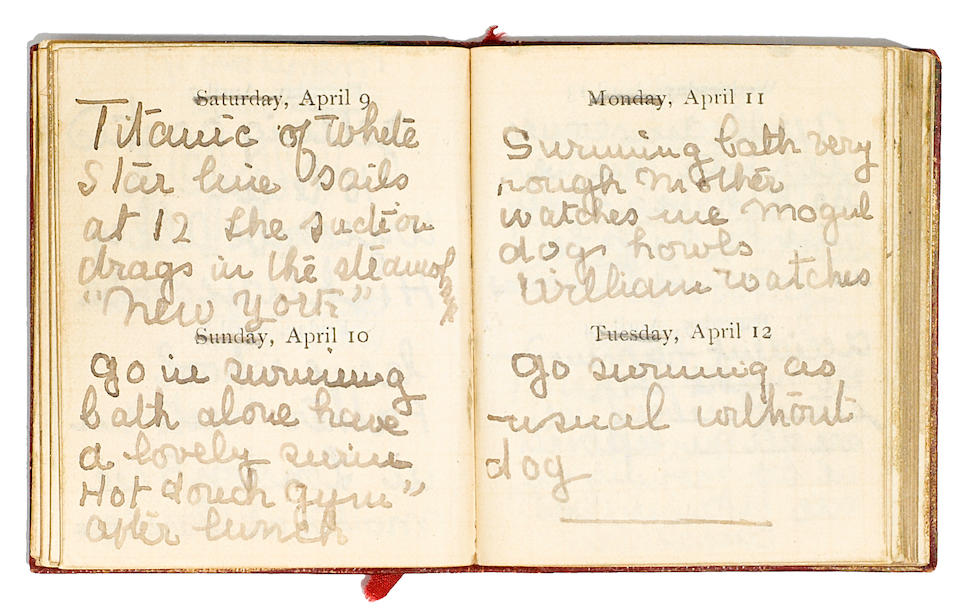 Saturday, April 9
Titanic of White
Star line sails
at 12 the suction
drags in the steam
"New York"
Sunday, April 10
Go in swimming
bath alone have
a lovely swim
Hot douch gym"
after lunch
Monday, April 11
Swimming bath very
rough Mother
watches me Mogul
dog howls
William watches
Tuesday, April 12
Go swimming as
usual without
dog